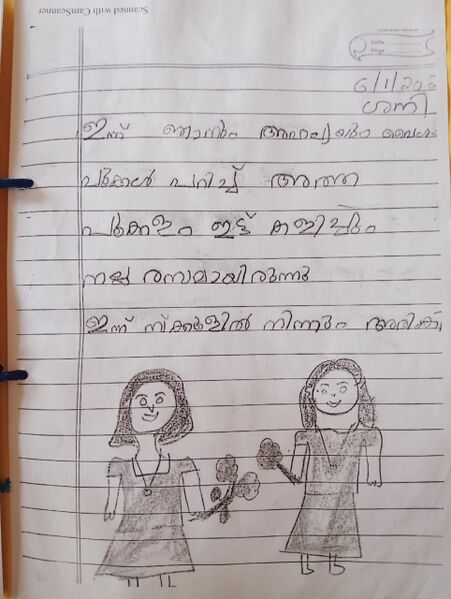 Scanned with CamScanner
Date
Page
6/1/20
ശനി
ഇന്ന് ഞാനും അമ്മയും
പൂക്കൾ പറിച്ച് അത്ത
പൂക്കളം ഇട്ട് കളിച്ചും
നല്ല രസമായിരുന്നു
ഇന്ന് സ്ക്കൂളിൽ നിന്നും അരികി